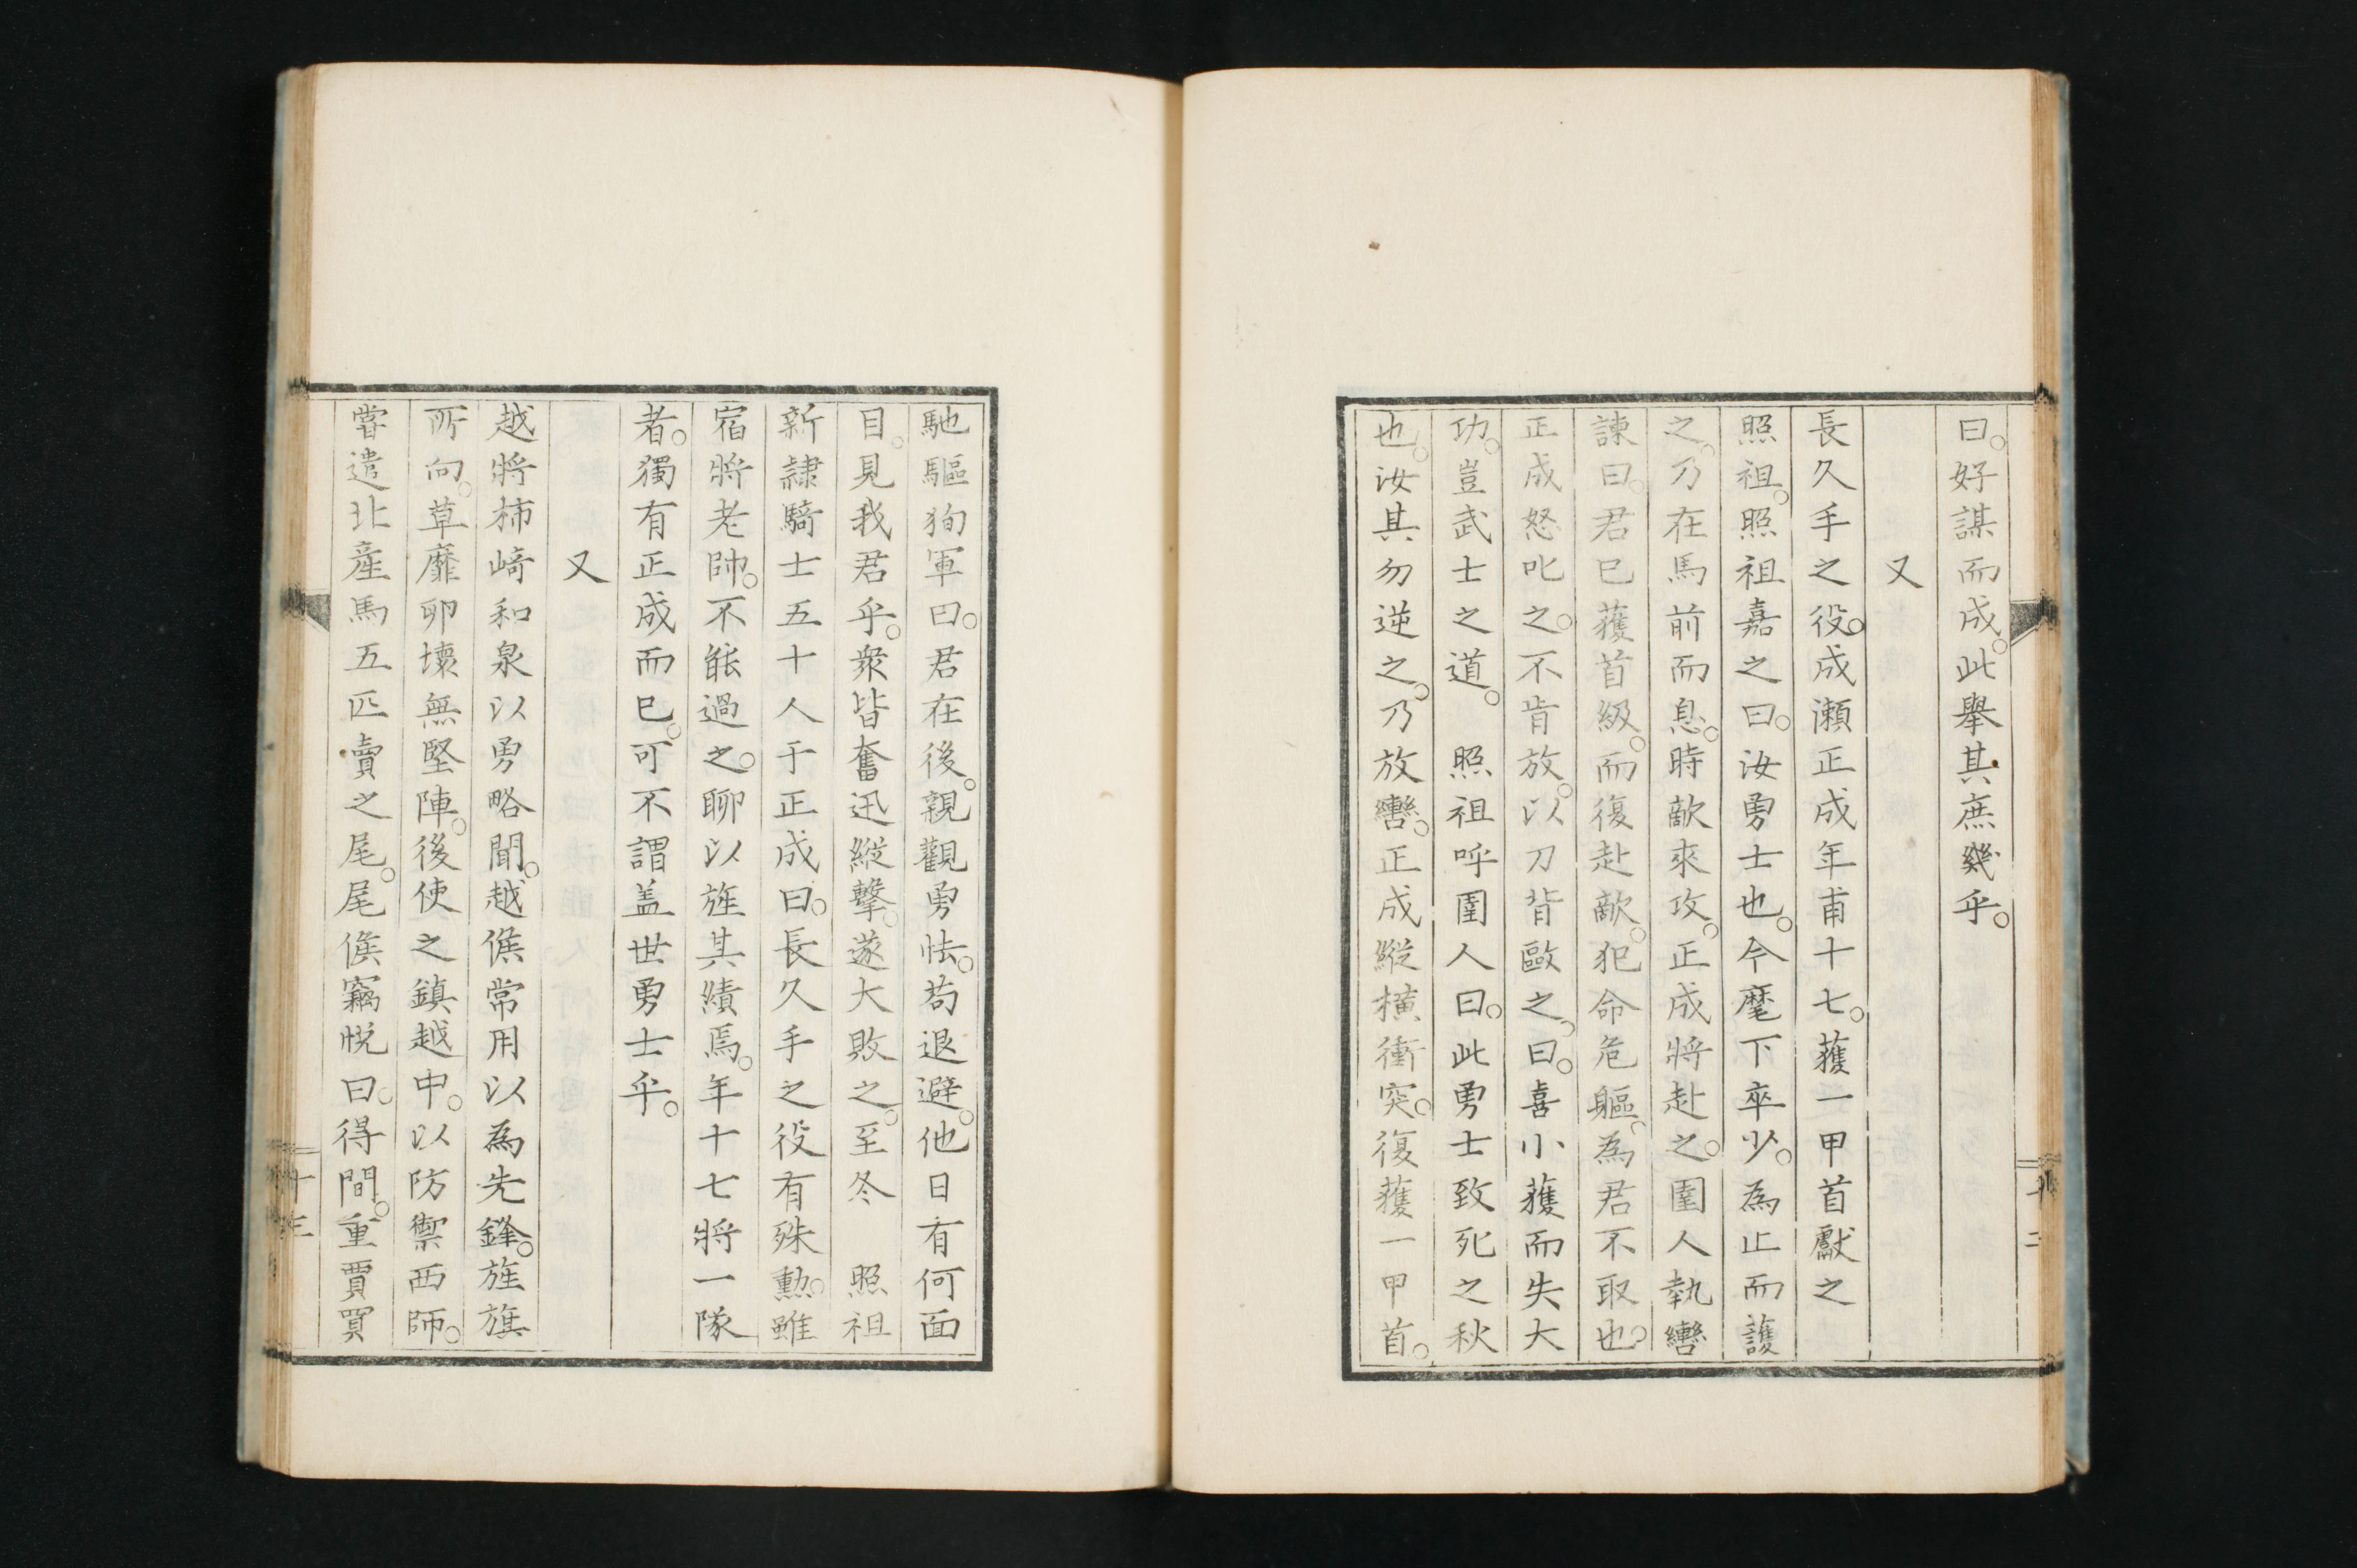 曰。好謀而成。此舉其庶幾乎。
又
長久手之役。成瀨正成年甫十七。獲一甲首獻之
照祖。照祖嘉之曰。汝勇士也。今麾下卒少。為止而護
之。乃在馬前而息。時敵來攻。正成將赴之。圉人執轡
諫曰。君已獲首級。而復赴敵。犯命危軀。為君不取也。
正成怒叱之。不肯放。以刀背毆之。曰。喜小獲而失大
功。豈武士之道。 照祖呼圉人曰。此勇士致死之秋
也。汝其勿逆之。乃放轡。正成縱橫衝突。復獲一甲首。
馳驅徇軍曰。君在後。親觀勇怯。苟退避。他日有何面
目。見我君乎。衆皆奮迅縱擊。遂大敗之。至冬 照祖
新隷騎士五十人于正成曰。長久手之役有殊勲。雖
宿將老帥。不能過之。聊以旌其績焉。年十七將一隊
者。獨有正成而已。可不謂盖世勇士乎。
又
越將柿崎和泉以勇略聞。越侯常用以為先鋒。旌旗
所向。草靡卵壞無堅陣。後使之鎮越中。以防禦西師。
嘗遣北產馬五匹賣之尾。尾侯竊悅曰。得間。重賈買
十三